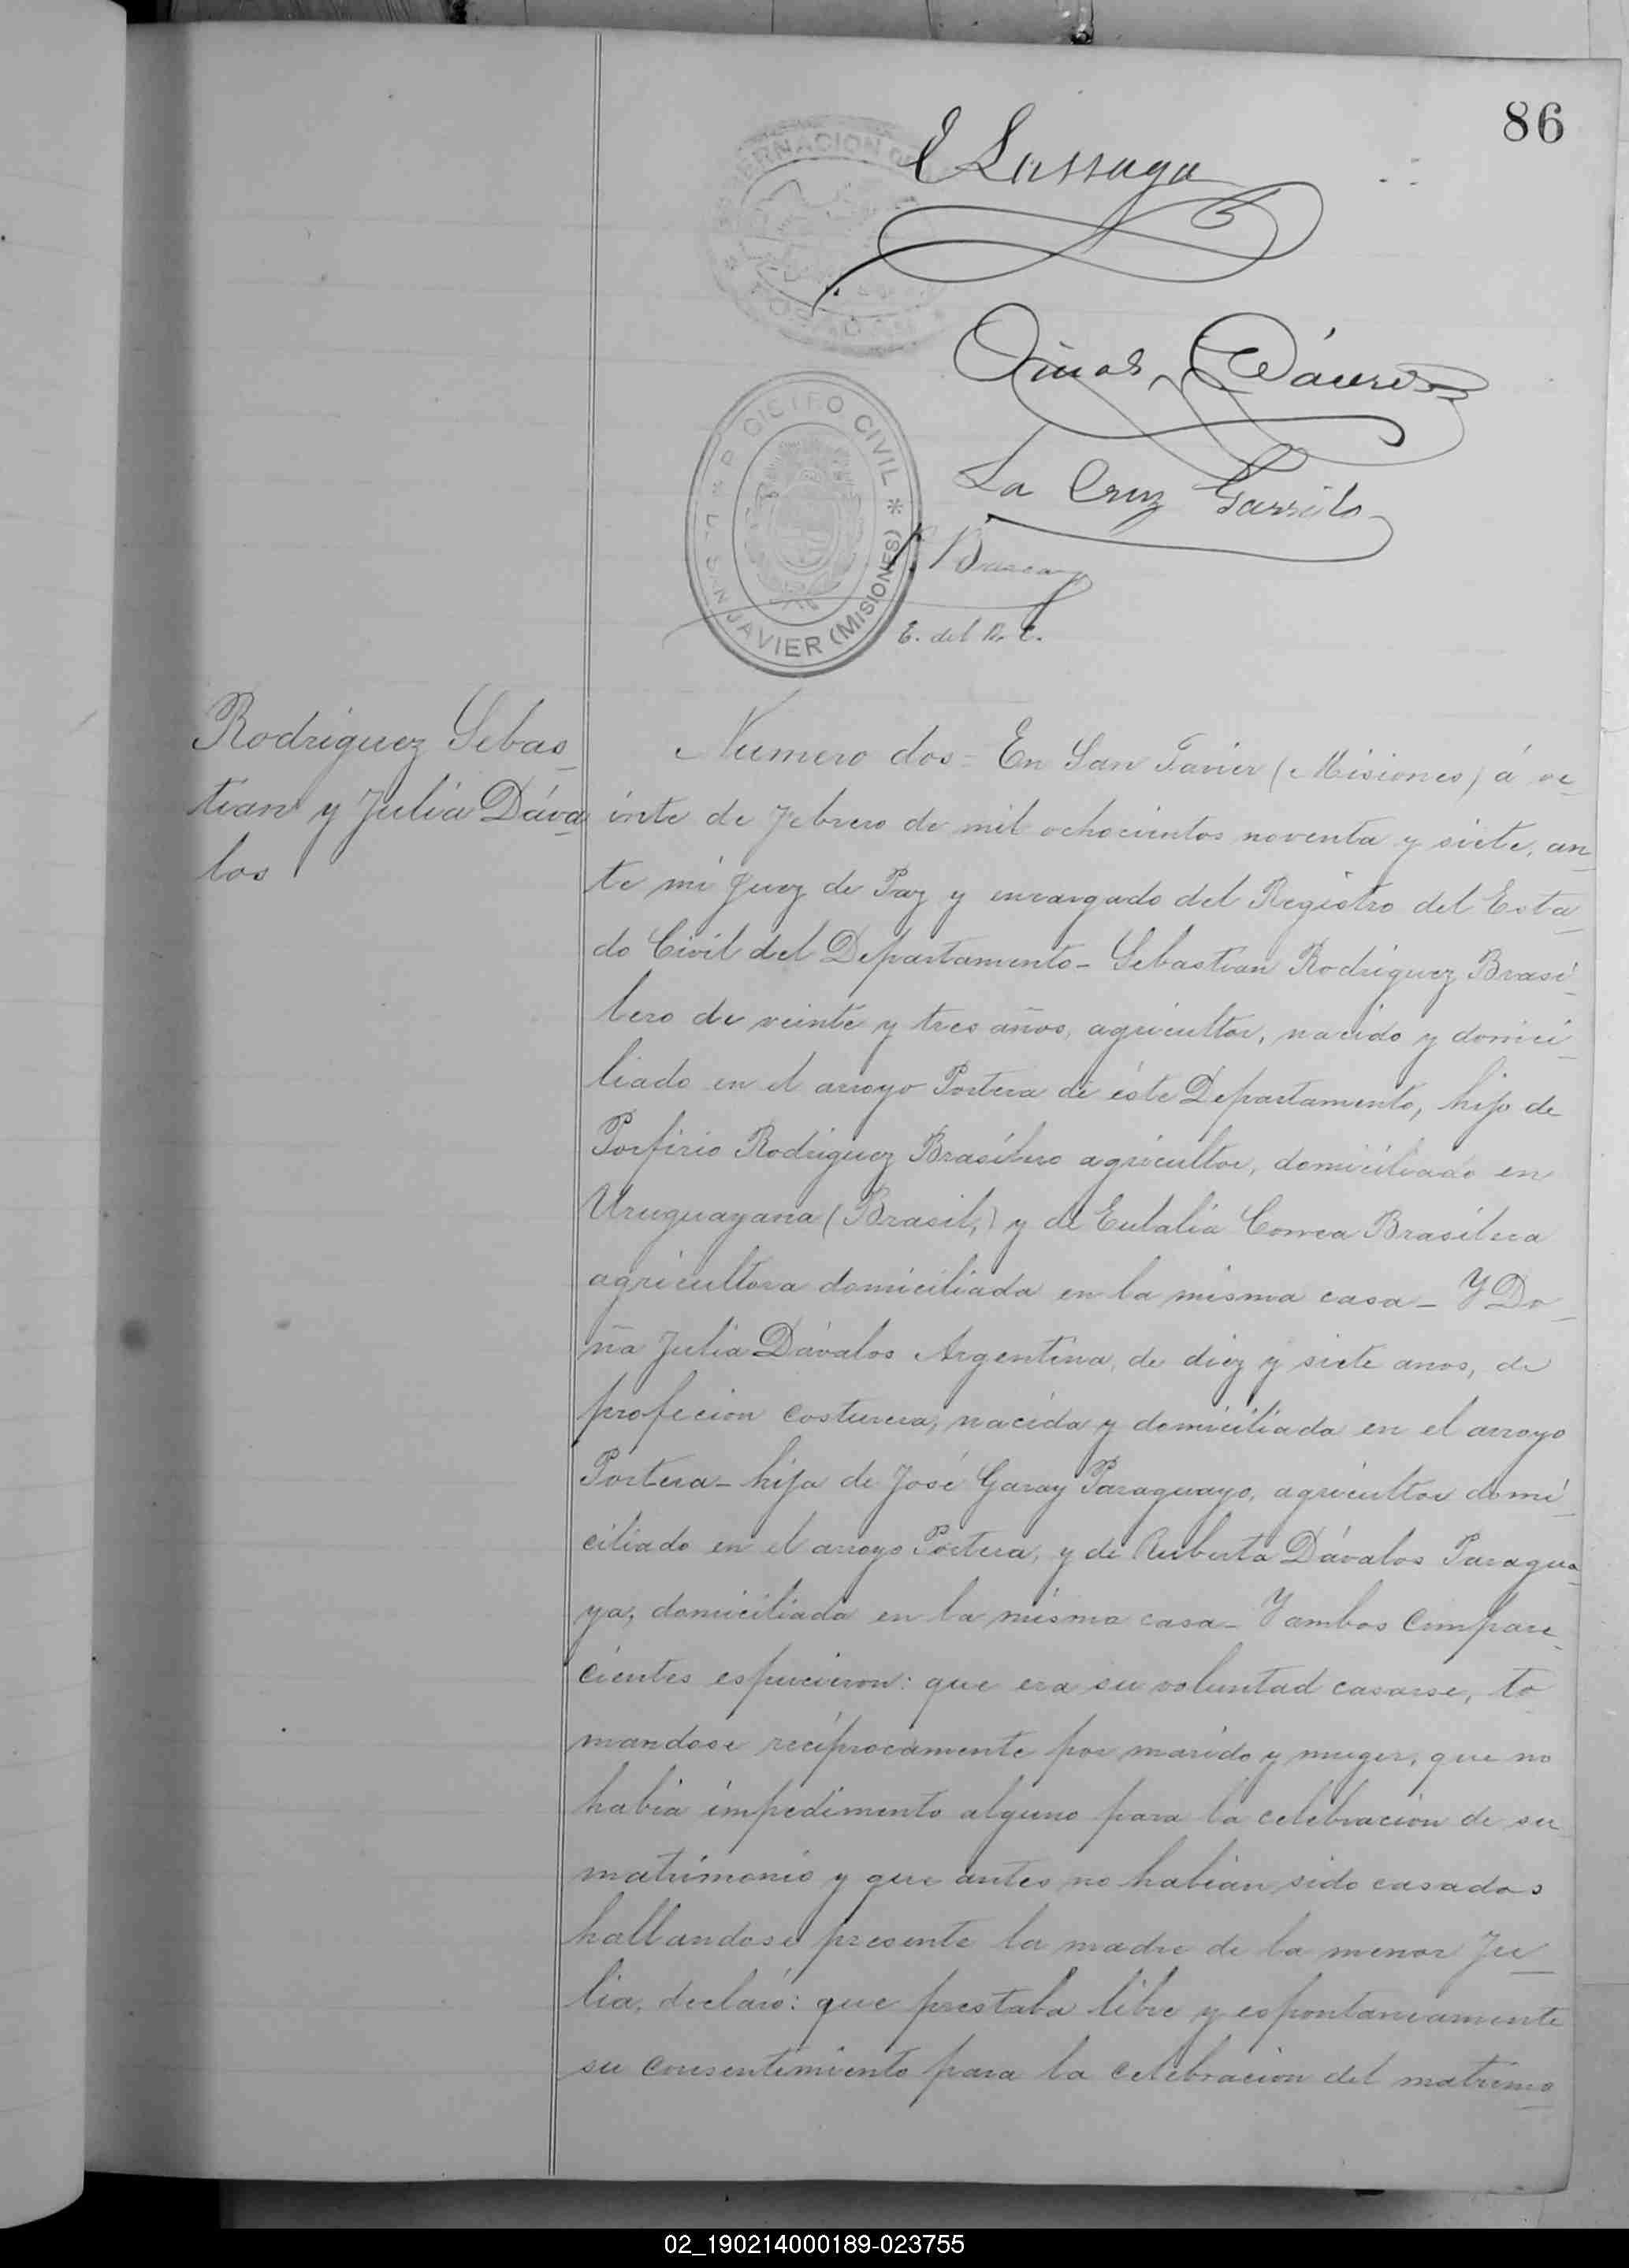 86
E Lassaga
La Cruz Garrido
REGISTRO CIVIL * SAN JAVIER (MISIONES)
E. del R. C.
Rodriguez Sebas
tian y Julia Dáva
los
Numero dos = En San Javier (Misiones) á ve
inte de Febrero de mil ochocientos noventa y siete, an
te mi Juez de Paz y encargado del Registro del Esta
do Civil del Departamento - Sebastian Rodriguez Brasi
lero de veinte y tres años, agricultor, nacido y domici
liado en el arroyo Portera de éste Departamento, hijo de
Porfirio Rodriguez Brasilero agricultor, domiciliado en
Uruguayana (Brasil,) y de Eulalia Correa Brasilera
agricultora domiciliada en la misma casa - Y Do
ña Julia Dávalos Argentina, de diez y siete anos, de
profecion costurera, nacida y domiciliada en el arroyo
Portera - hija de José Garay Paraguayo, agricultor domi
ciliado en el arroyo Portera, y de Ruberta Dávalos Paragua
ya, domiciliada en la misma casa - Y ambos compare
cientes espucieron: que era su voluntad casarse, to
mandose reciprocamente por marido y muger, que no
habia impedimento alguno para la celebracion de su
matrimonio y que antes no habian sido casados
hallandose presente la madre de la menor Ju
lia, declaró: que prestaba libre y espontaneamente
su consentimiento para la celebracion del matrimo
02_190214000189-023755